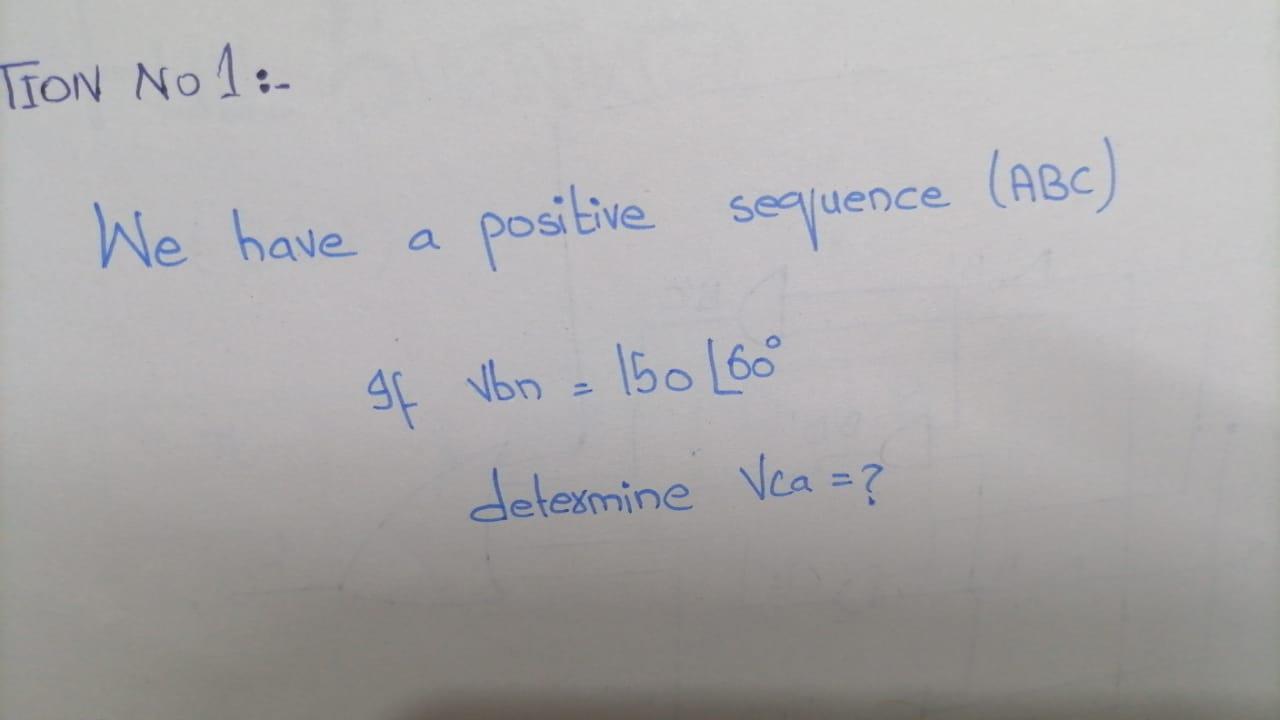 TION No 1:-
We have a positive sequence (ABC)
If Vbn = 150 ⌊60°
determine Vca = ?